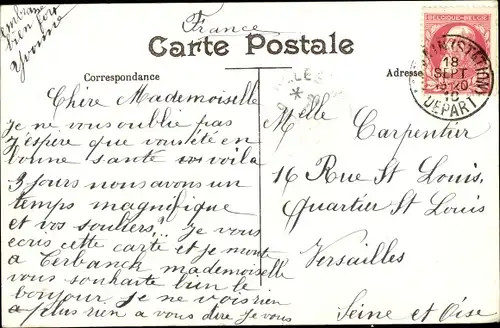 embrasse
bien fort
Yvonne
France
Carte Postale
Correspondance
Adresse
BELGIQUE-BELGIË
18
SEPT
19-20
10
DEPART
Chère Mademoiselle
je ne vous oublie pas
j'espère que vous été en
bonne santé voila
3 jours nous avons un
temps magnifique
et vos souliers? Je vous
ecris cette carte et je
a Terbanck mademoiselle
vous souhaite bien le
bonjour. Je ne vois rien
a plus rien a vous dire je vous
Melle
Carpentier
16 Rue St Louis,
Quartier St Louis
Versailles
Seine et Oise